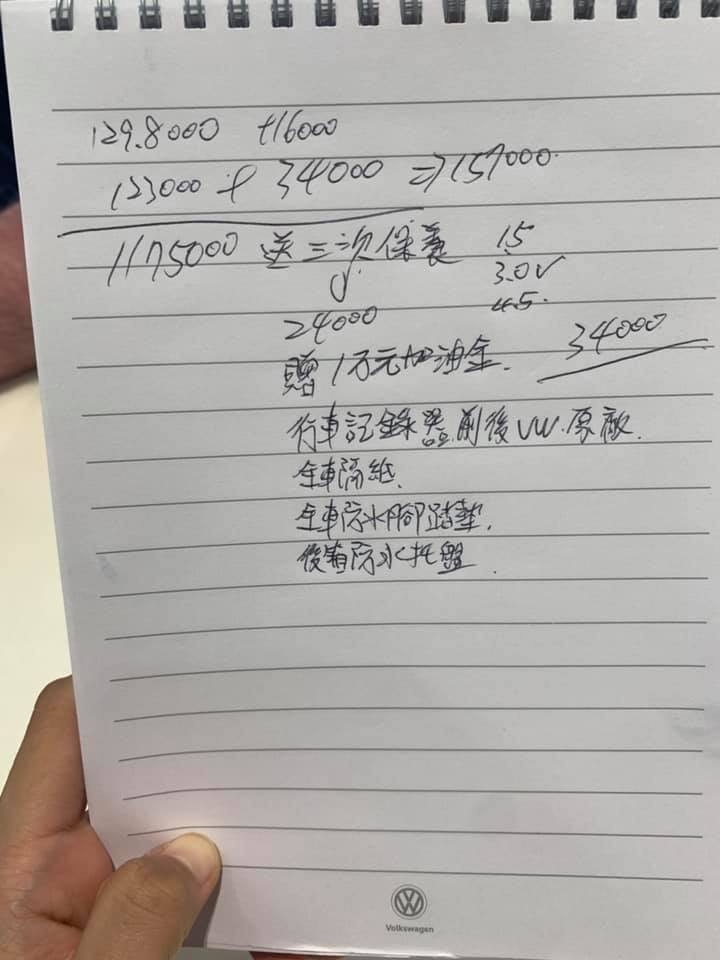 129.8000 +16000
123000 + 34000 => 157000.
1175000 送三次保養 1.5
3.0V
24000 4.5.
贈1万元加油金. 34000
行車記錄器.前後VW.原廠.
全車隔紙.
全車防水腳踏墊.
後箱防水托盤.
Volkswagen